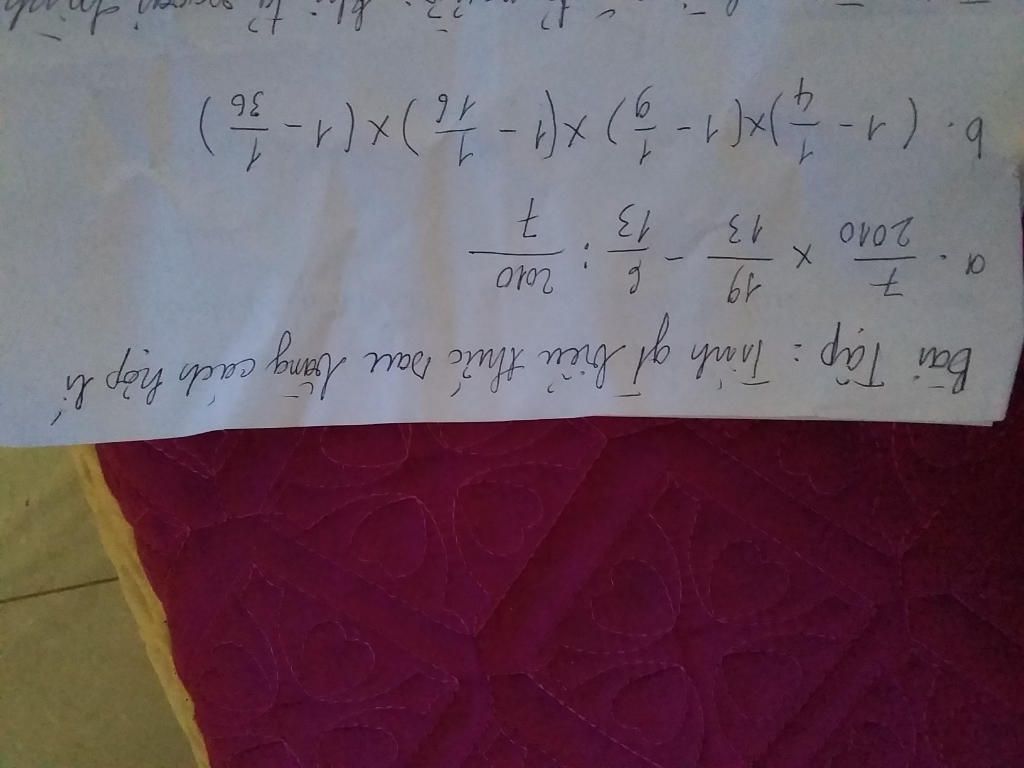 Bài Tập: Tính gt biểu thức sau bằng cách hợp lí
a. 7/2010 × 19/13 - 6/13 : 2010/7
b. (1 - 1/4) × (1 - 1/9) × (1 - 1/16) × (1 - 1/36)